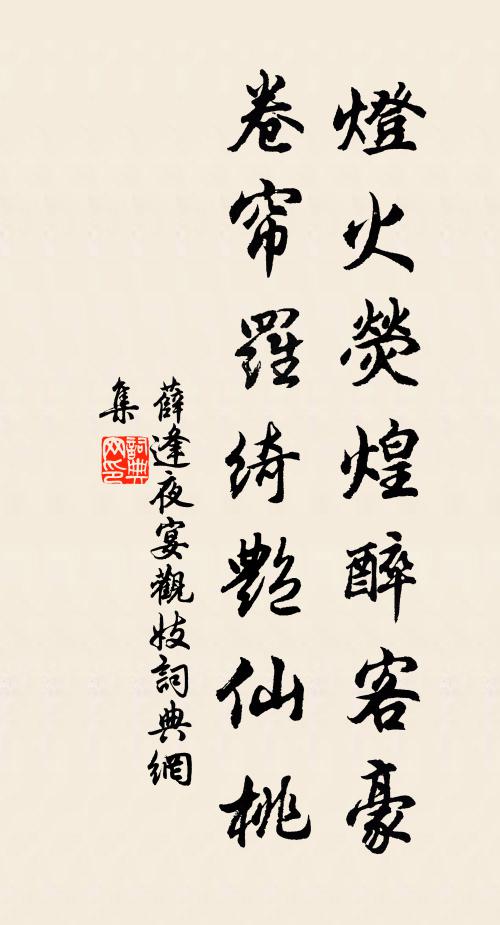 燈火熒煌醉客豪
卷帘羅綺艷仙桃
薛逢夜宴觀妓詞典網
集
詞典網印